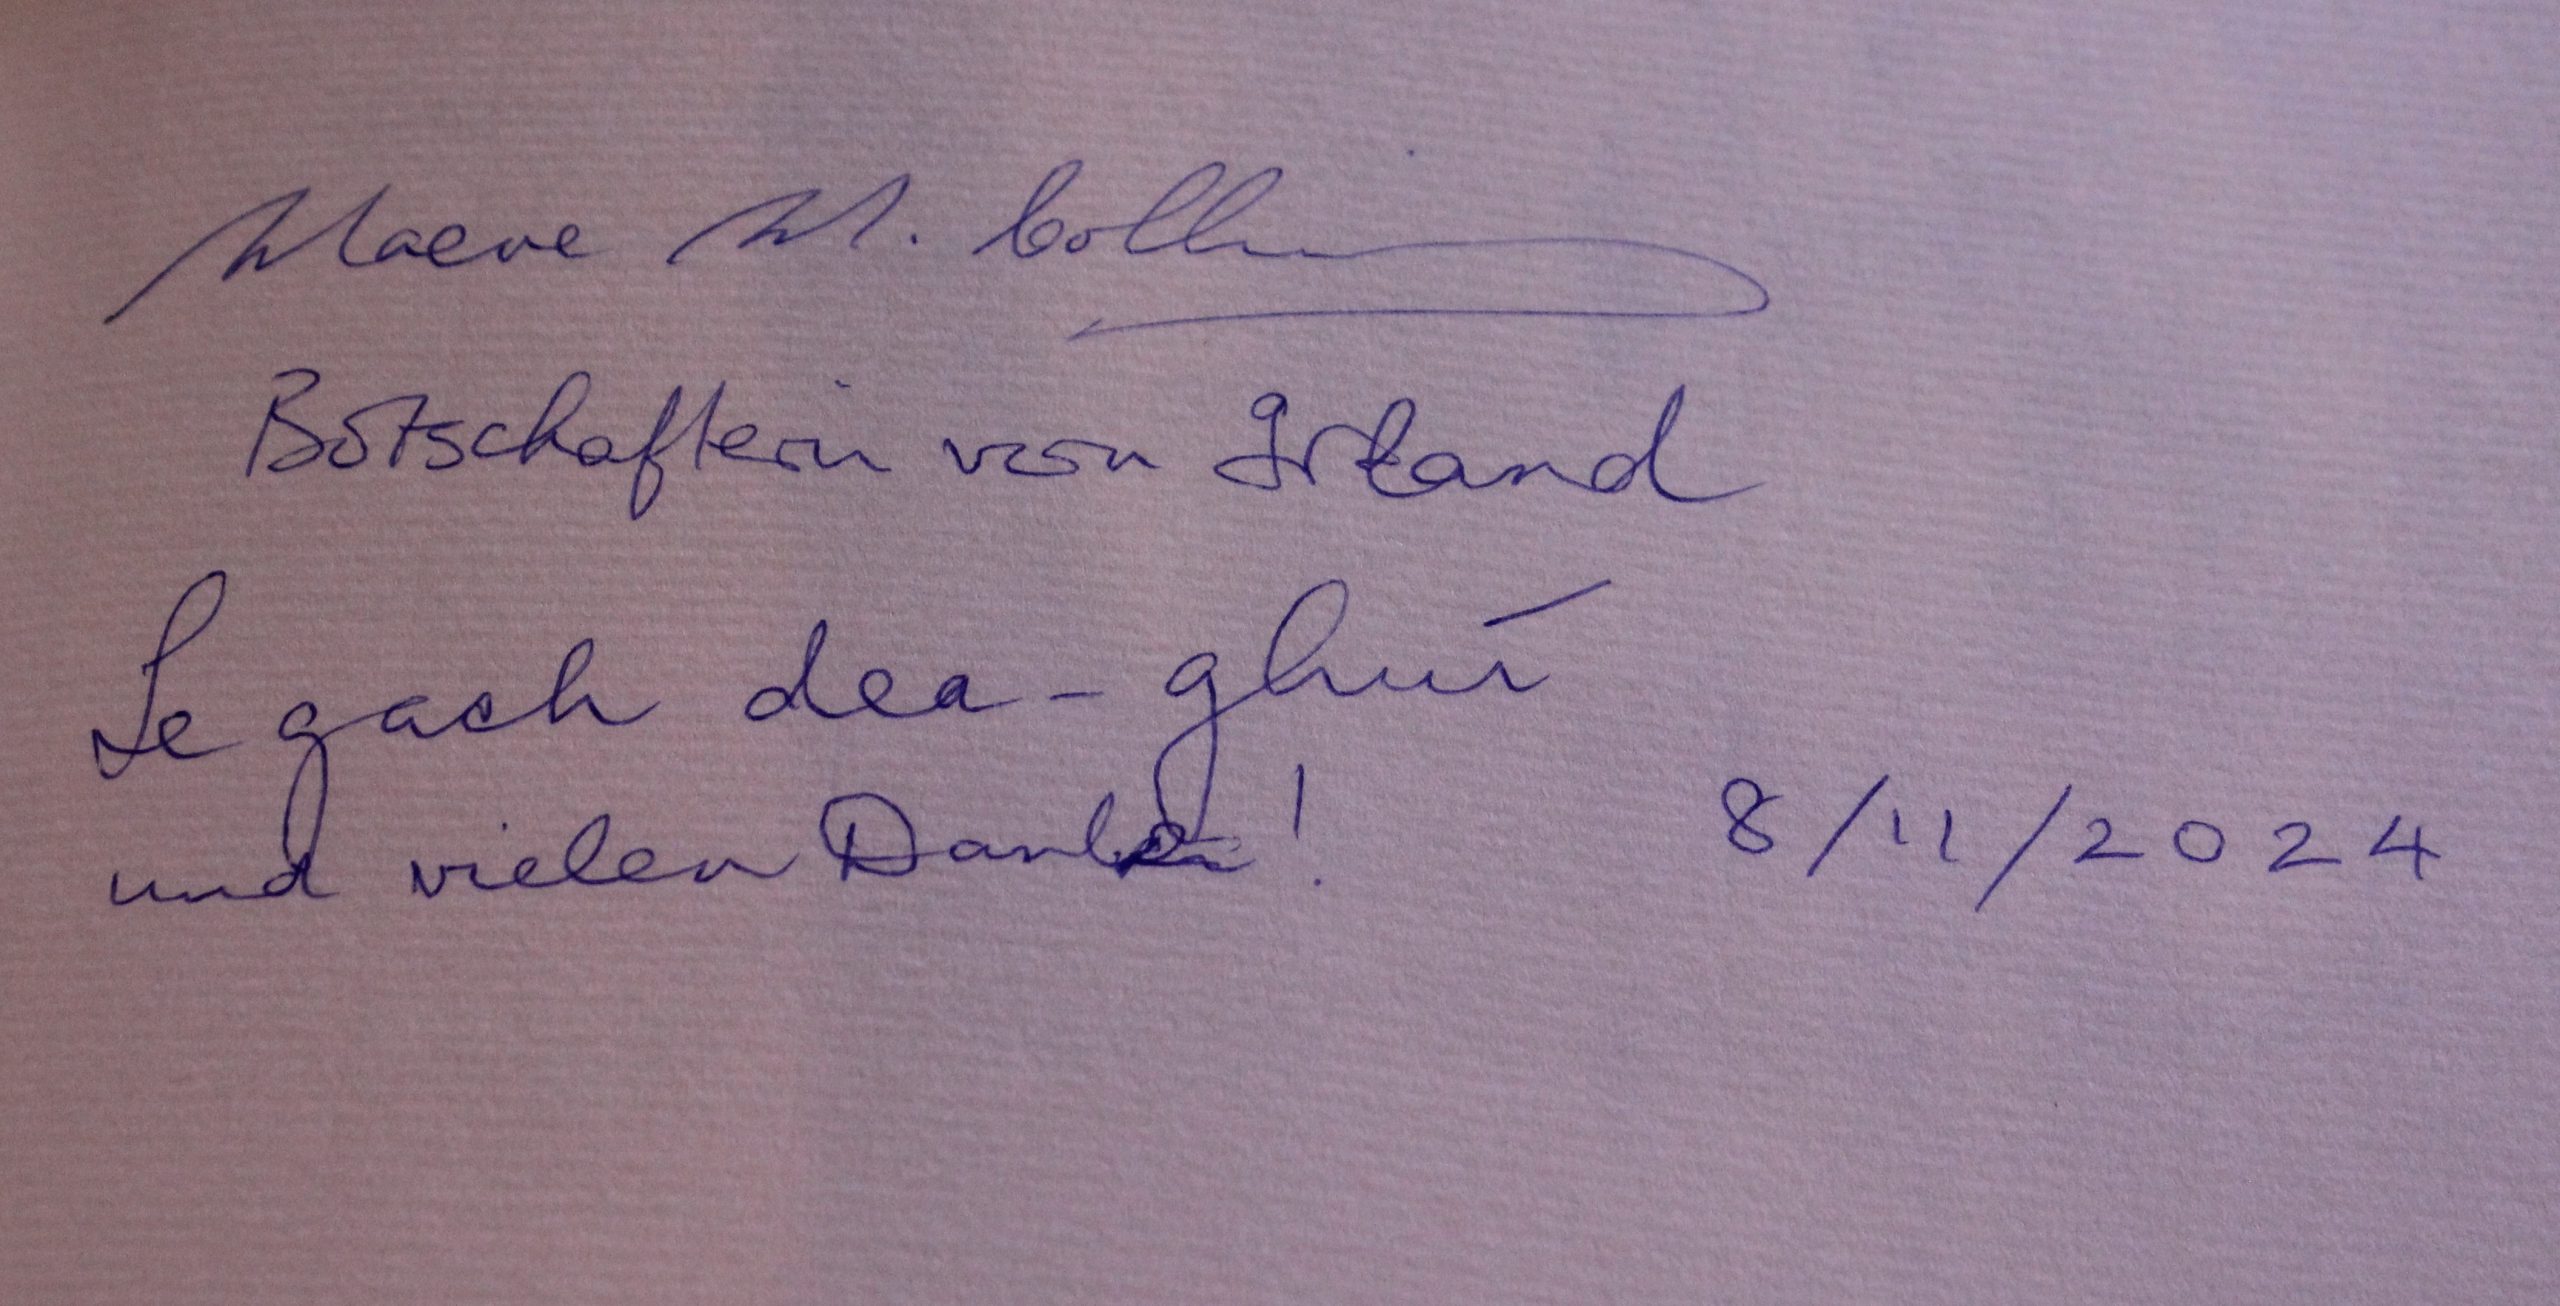 Maeve M. Collins
Botschafterin von Irland
Le gach dea-ghuí
und vielen Dank!
8/11/2024